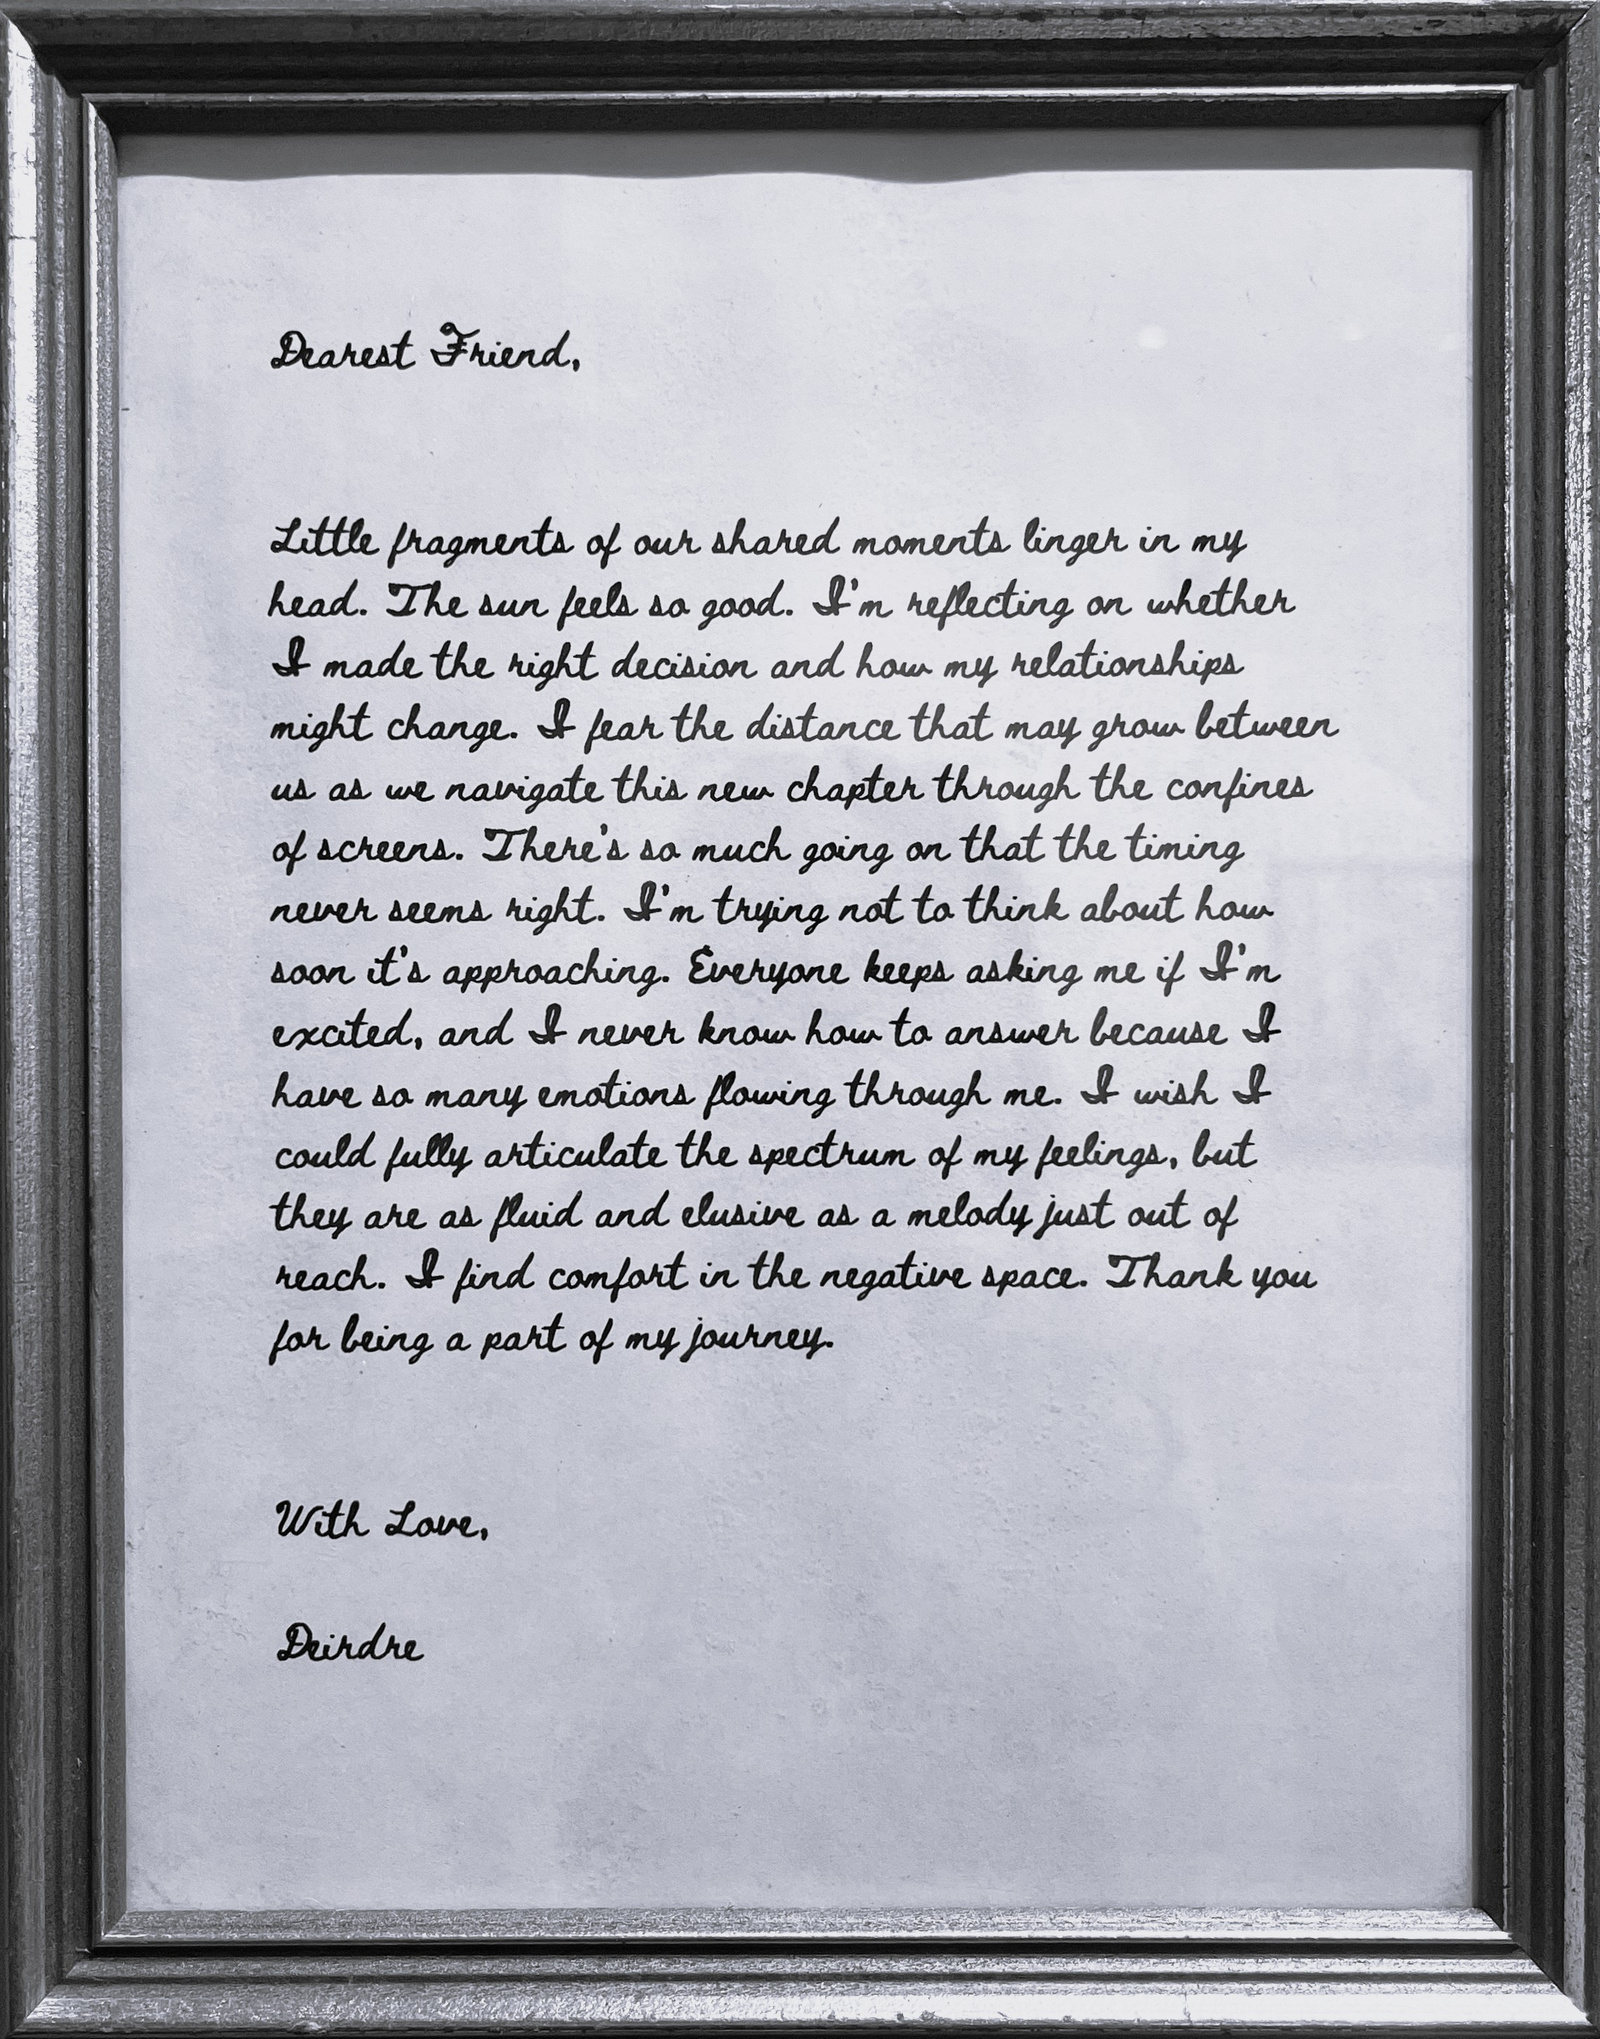 Dearest Friend,
Little fragments of our shared moments linger in my
head. The sun feels so good. I'm reflecting on whether
I made the right decision and how my relationships
might change. I fear the distance that may grow between
us as we navigate this new chapter through the confines
of screens. There's so much going on that the timing
never seems right. I'm trying not to think about how
soon it's approaching. Everyone keeps asking me if I'm
excited, and I never know how to answer because I
have so many emotions flowing through me. I wish I
could fully articulate the spectrum of my feelings, but
they are as fluid and elusive as a melody just out of
reach. I find comfort in the negative space. Thank you
for being a part of my journey.
With Love,
Deirdre